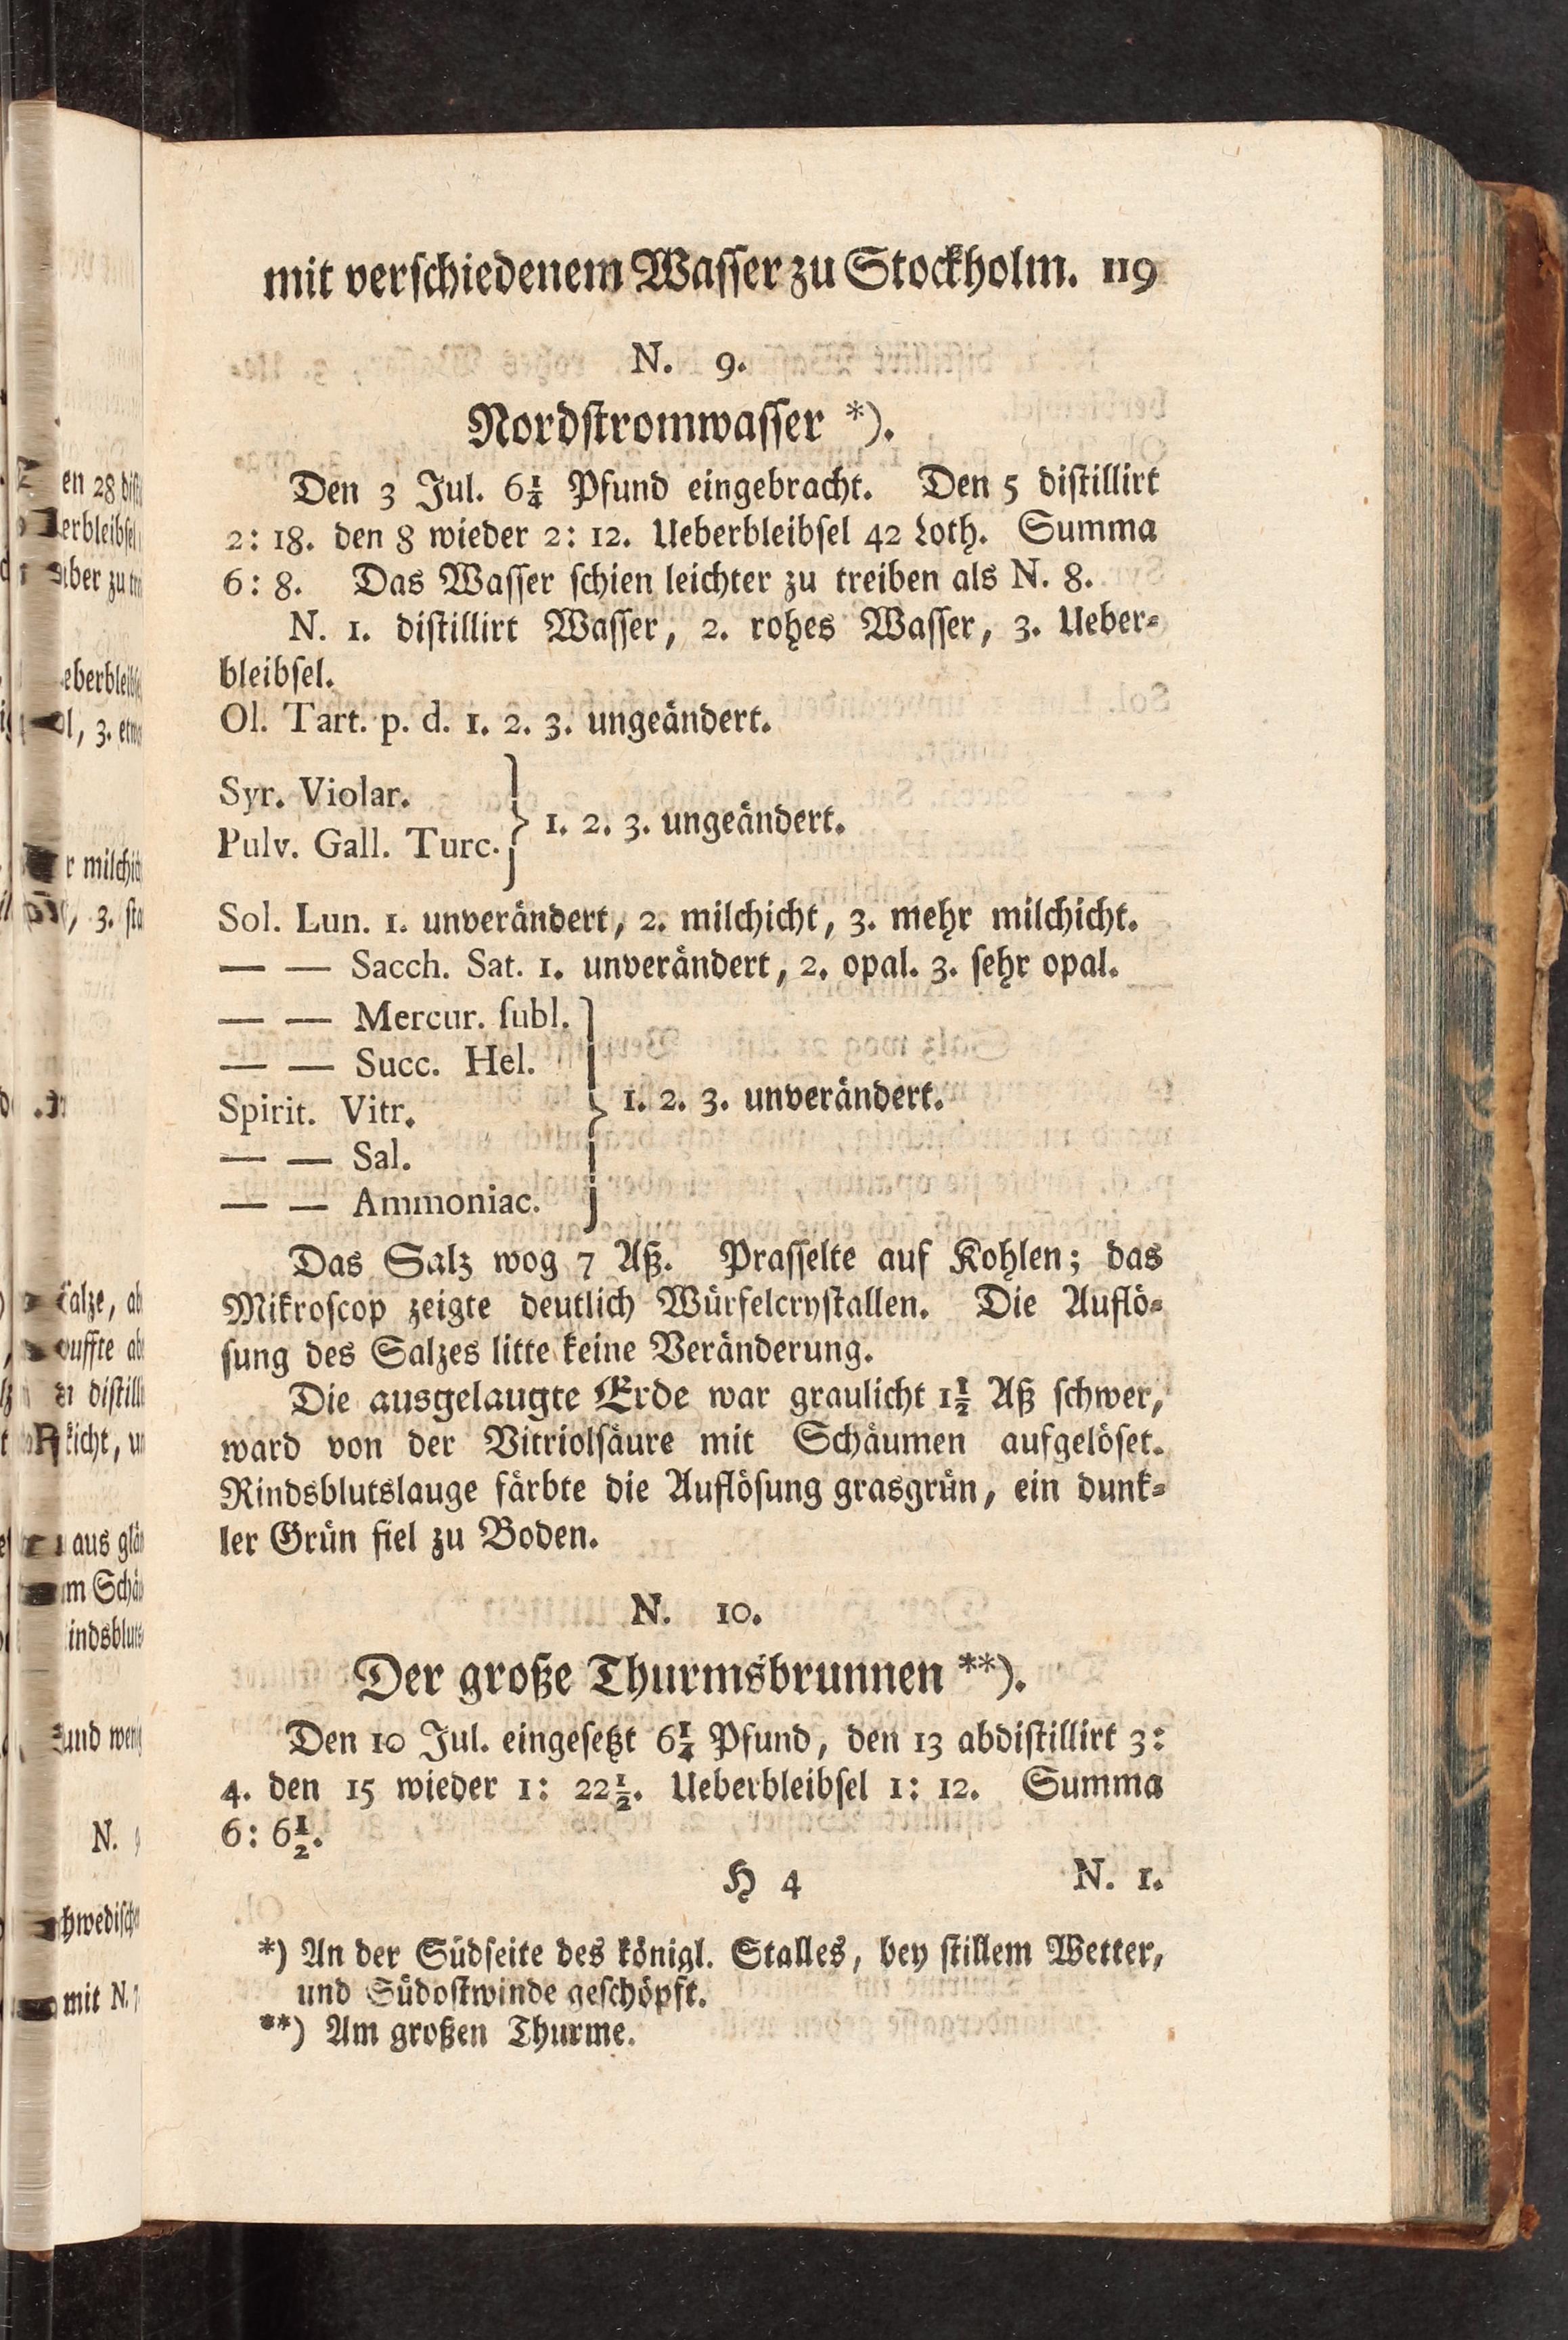 mit verschiedenem Wasser zu Stockholm. 119
N. 9.
Nordstromwasser *).
Den 3 Jul. 6¼ Pfund eingebracht. Den 5 distillirt
2: 18. den 8 wieder 2: 12. Ueberbleibsel 42 Loth. Summa
6: 8. Das Wasser schien leichter zu treiben als N. 8.
N. 1. distillirt Wasser, 2. rohes Wasser, 3. Ueber-
bleibsel.
Ol. Tart. p. d. 1. 2. 3. ungeändert.
Syr. Violar.
Pulv. Gall. Turc. } 1. 2. 3. ungeändert.
Sol. Lun. 1. unverändert, 2. milchicht, 3. mehr milchicht.
— — Sacch. Sat. 1. unverändert, 2. opal. 3. sehr opal.
— — Mercur. subl.
— — Succ. Hel.
Spirit. Vitr. } 1. 2. 3. unverändert.
— — Sal.
— — Ammoniac.
Das Salz wog 7 Aß. Prasselte auf Kohlen; das
Mikroscop zeigte deutlich Würfelcrystallen. Die Auflö-
sung des Salzes litte keine Veränderung.
Die ausgelaugte Erde war graulicht 1½ Aß schwer,
ward von der Vitriolsäure mit Schäumen aufgelöset.
Rindsblutslauge färbte die Auflösung grasgrün, ein dunk-
ler Grün fiel zu Boden.
N. 10.
Der große Thurmsbrunnen **).
Den 10 Jul. eingesetzt 6¼ Pfund, den 13 abdistillirt 3:
4. den 15 wieder 1: 22½. Ueberbleibsel 1: 12. Summa
6: 6½.
H 4 N. 1.
*) An der Südseite des königl. Stalles, bey stillem Wetter,
und Südostwinde geschöpft.
**) Am großen Thurme.